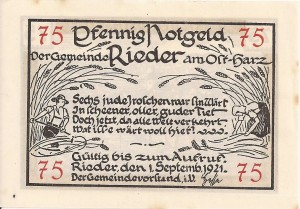 75 Pfennig Notgeld 75
Der Gemeinde Rieder am Ost-Harz
Sechs jude Jroschen war sin Wärt
In scheener, oller, guder Tiet
Doch jetzt, da alle Welt verkehrt
Wat
wärt woll hiet?
75 Gültig bis zum Aufruf. 75
Rieder, den 1. Septemb. 1921.
Der Gemeindevorstand, i.V.